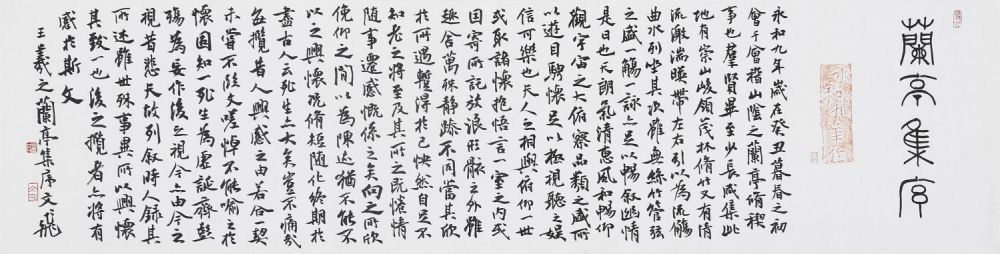 蘭亭集序
永和九年歲在癸丑暮春之初
會于會稽山陰之蘭亭脩稧
事也群賢畢至少長咸集此
地有崇山峻領茂林脩竹又有清
流激湍暎帶左右引以為流觴
曲水列坐其次雖無絲竹管弦
之盛一觴一詠亦足以暢敘幽情
是日也天朗氣清惠風和暢仰
觀宇宙之大俯察品類之盛所
以遊目騁懷足以極視聽之娛
信可樂也夫人之相與俯仰一世
或取諸懷抱悟言一室之內或
因寄所託放浪形骸之外雖
趣舍萬殊靜躁不同當其欣
於所遇暫得於己怏然自足不
知老之將至及其所之既惓情
隨事遷感慨係之矣向之所欣
俛仰之間以為陳迹猶不能不
以之興懷況脩短隨化終期於
盡古人云死生亦大矣豈不痛哉
每攬昔人興感之由若合一契
未嘗不臨文嗟悼不能喻之於
懷固知一死生為虛誕齊彭
殤為妄作後之視今亦由今之
視昔悲夫故列敘時人錄其
所述雖世殊事異所以興懷
其致一也後之攬者亦將有
感於斯文
王羲之蘭亭集序文